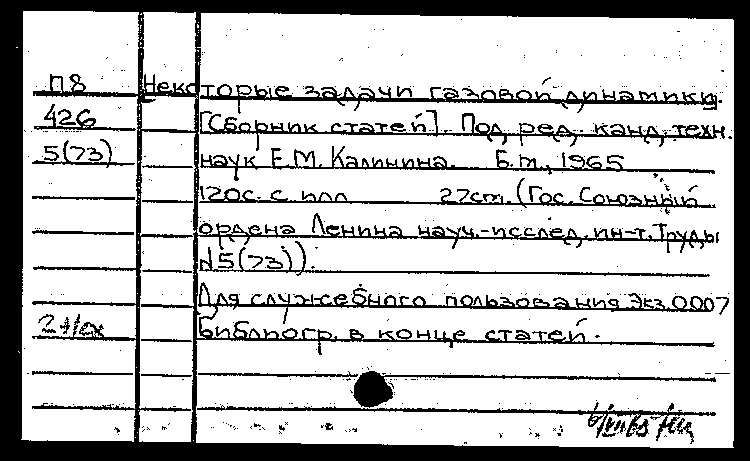 П8 Некоторые задачи газовой динамики.
426 [Сборник статей]. Под ред. канд. техн.
5(73) наук Е.М. Калинина. Б.м., 1965
120с. с илл 27см. (Гос. Союзный
ордена Ленина науч.-исслед. ин-т. Труды
№5(73)).
Для служебного пользования Экз.0007
Библиогр. в конце статей.